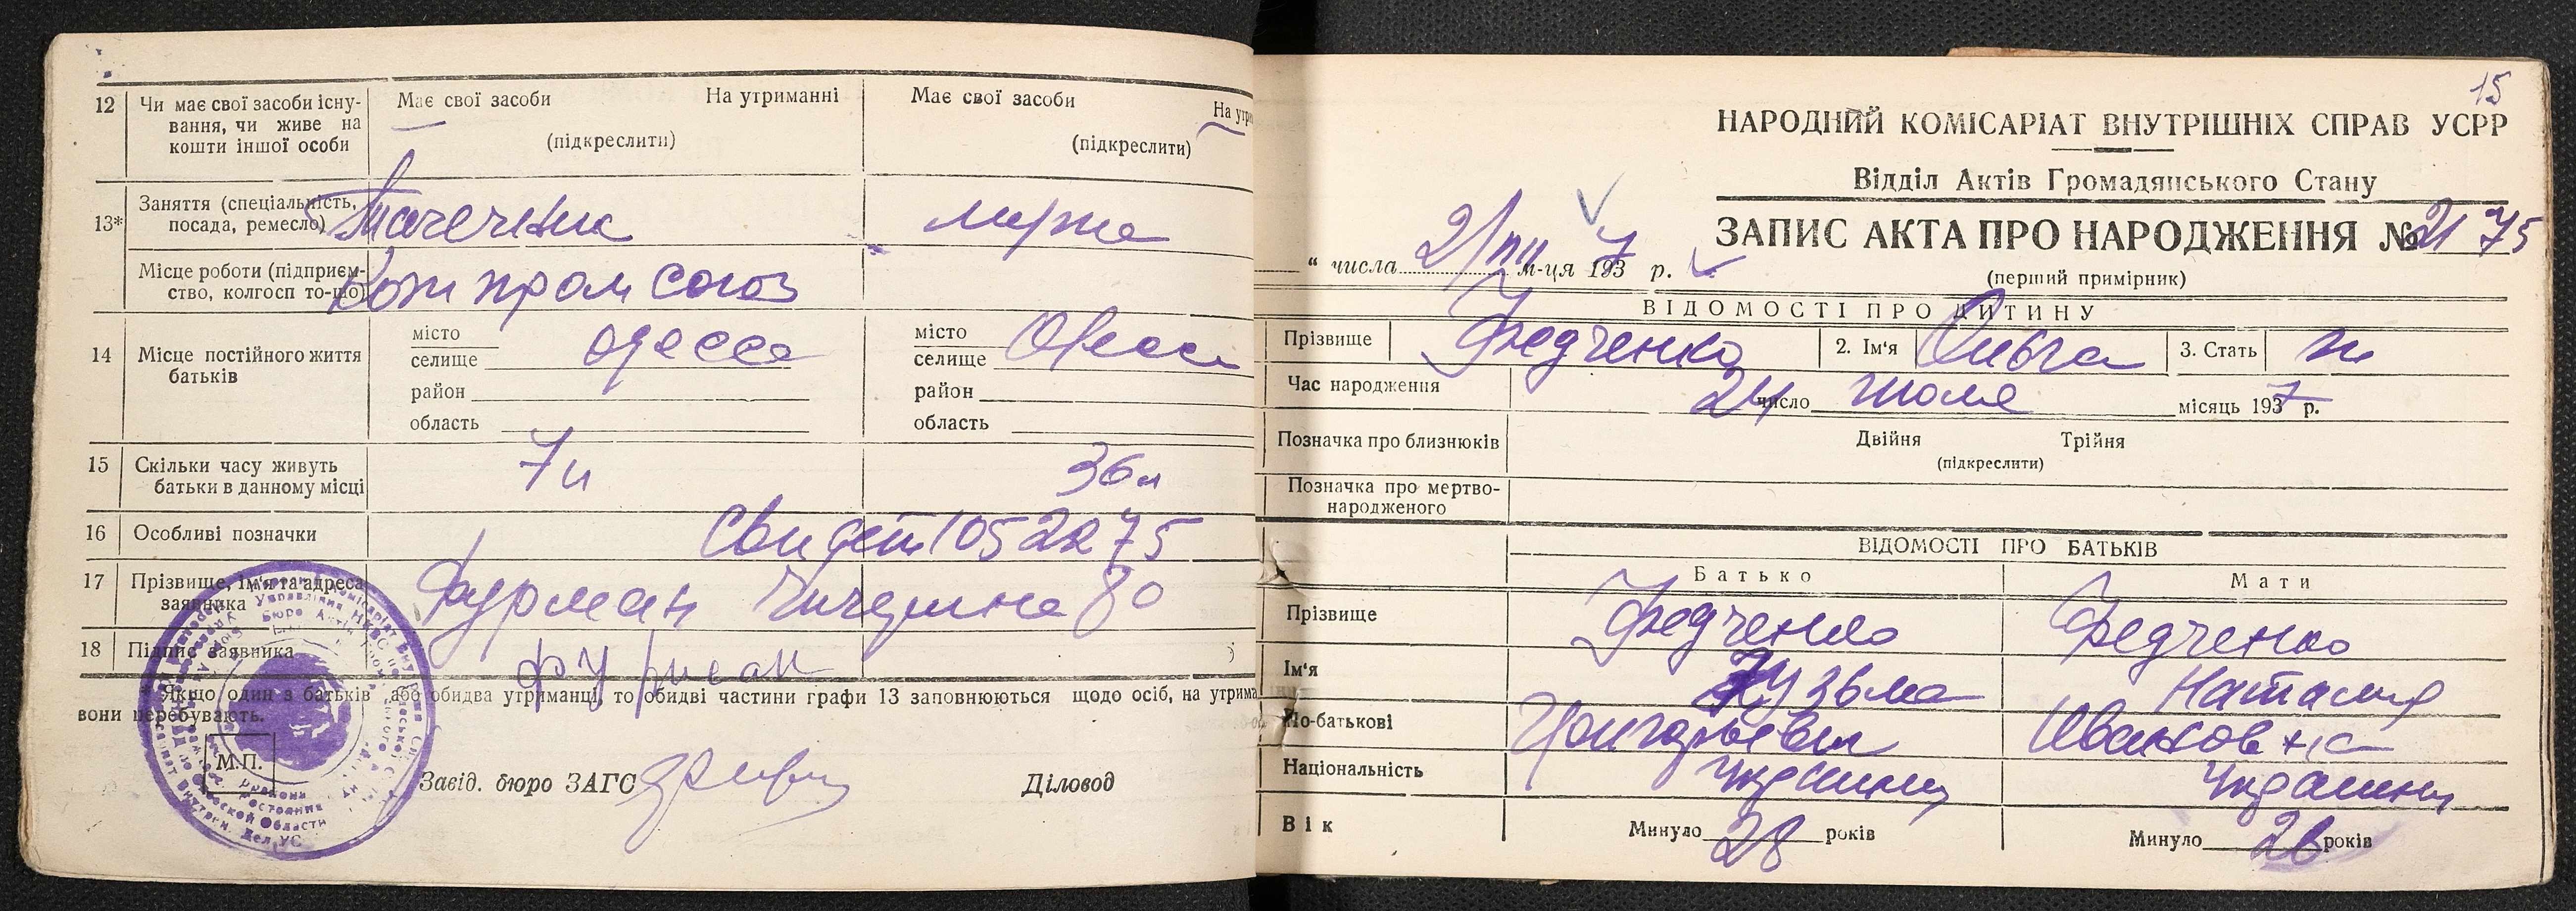 12 Чи має свої засоби існу-
вання, чи живе на
кошти іншої особи
Має свої засоби На утриманні
(підкреслити)
Має свої засоби На утри
(підкреслити)
13* Заняття (спеціальність,
посада, ремесло)
Місце роботи (підприєм-
ство, колгосп то-що)
Кожпромсоюз
14 Місце постійного життя
батьків
місто
селище Одесса
район
область
місто
селище Одесса
район
область
15 Скільки часу живуть
батьки в данному місці
7 л
36 л
16 Особливі позначки
Свидет 1052275
17 Прізвище, ім'я та адреса
заявника
Фурман Чичерина 80
18 Підпис заявника
Фурман
Якщо один з батьків або обидва утриманці, то обидві частини графи 13 заповнюються щодо осіб, на утрима
вони перебувають.
М.П.
Завід. бюро ЗАГС
Діловод
15
НАРОДНИЙ КОМІСАРІАТ ВНУТРІШНІХ СПРАВ УСРР
Відділ Актів Громадянського Стану
ЗАПИС АКТА ПРО НАРОДЖЕННЯ № 2175
(перший примірник)
“ числа 2/VIII м-ця 1937 р.
ВІДОМОСТІ ПРО ДИТИНУ
Прізвище Федченко 2. Ім'я Ольга 3. Стать ж
Час народження 24 число июля місяць 1937 р.
Позначка про близнюків Двійня Трійня
(підкреслити)
Позначка про мертво-
народженого
ВІДОМОСТІ ПРО БАТЬКІВ
Батько Мати
Прізвище Федченко Федченко
Ім'я Кузьма Наталия
По-батькові Григорьевич Ивановна
Національність Украинец Украинка
Вік Минуло 28 років Минуло 26 років